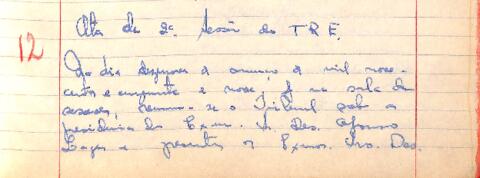 12
Ata da 2ª Sessão do T R E.
Ao dia dezenove de mil nove-
centos e cinquenta e nove, na sala de
sessões, reuniu-se o Tribunal sob a
presidência do Exmo. Sr. Des. Afonso
Lages e presentes os Exmos. Srs. Des.